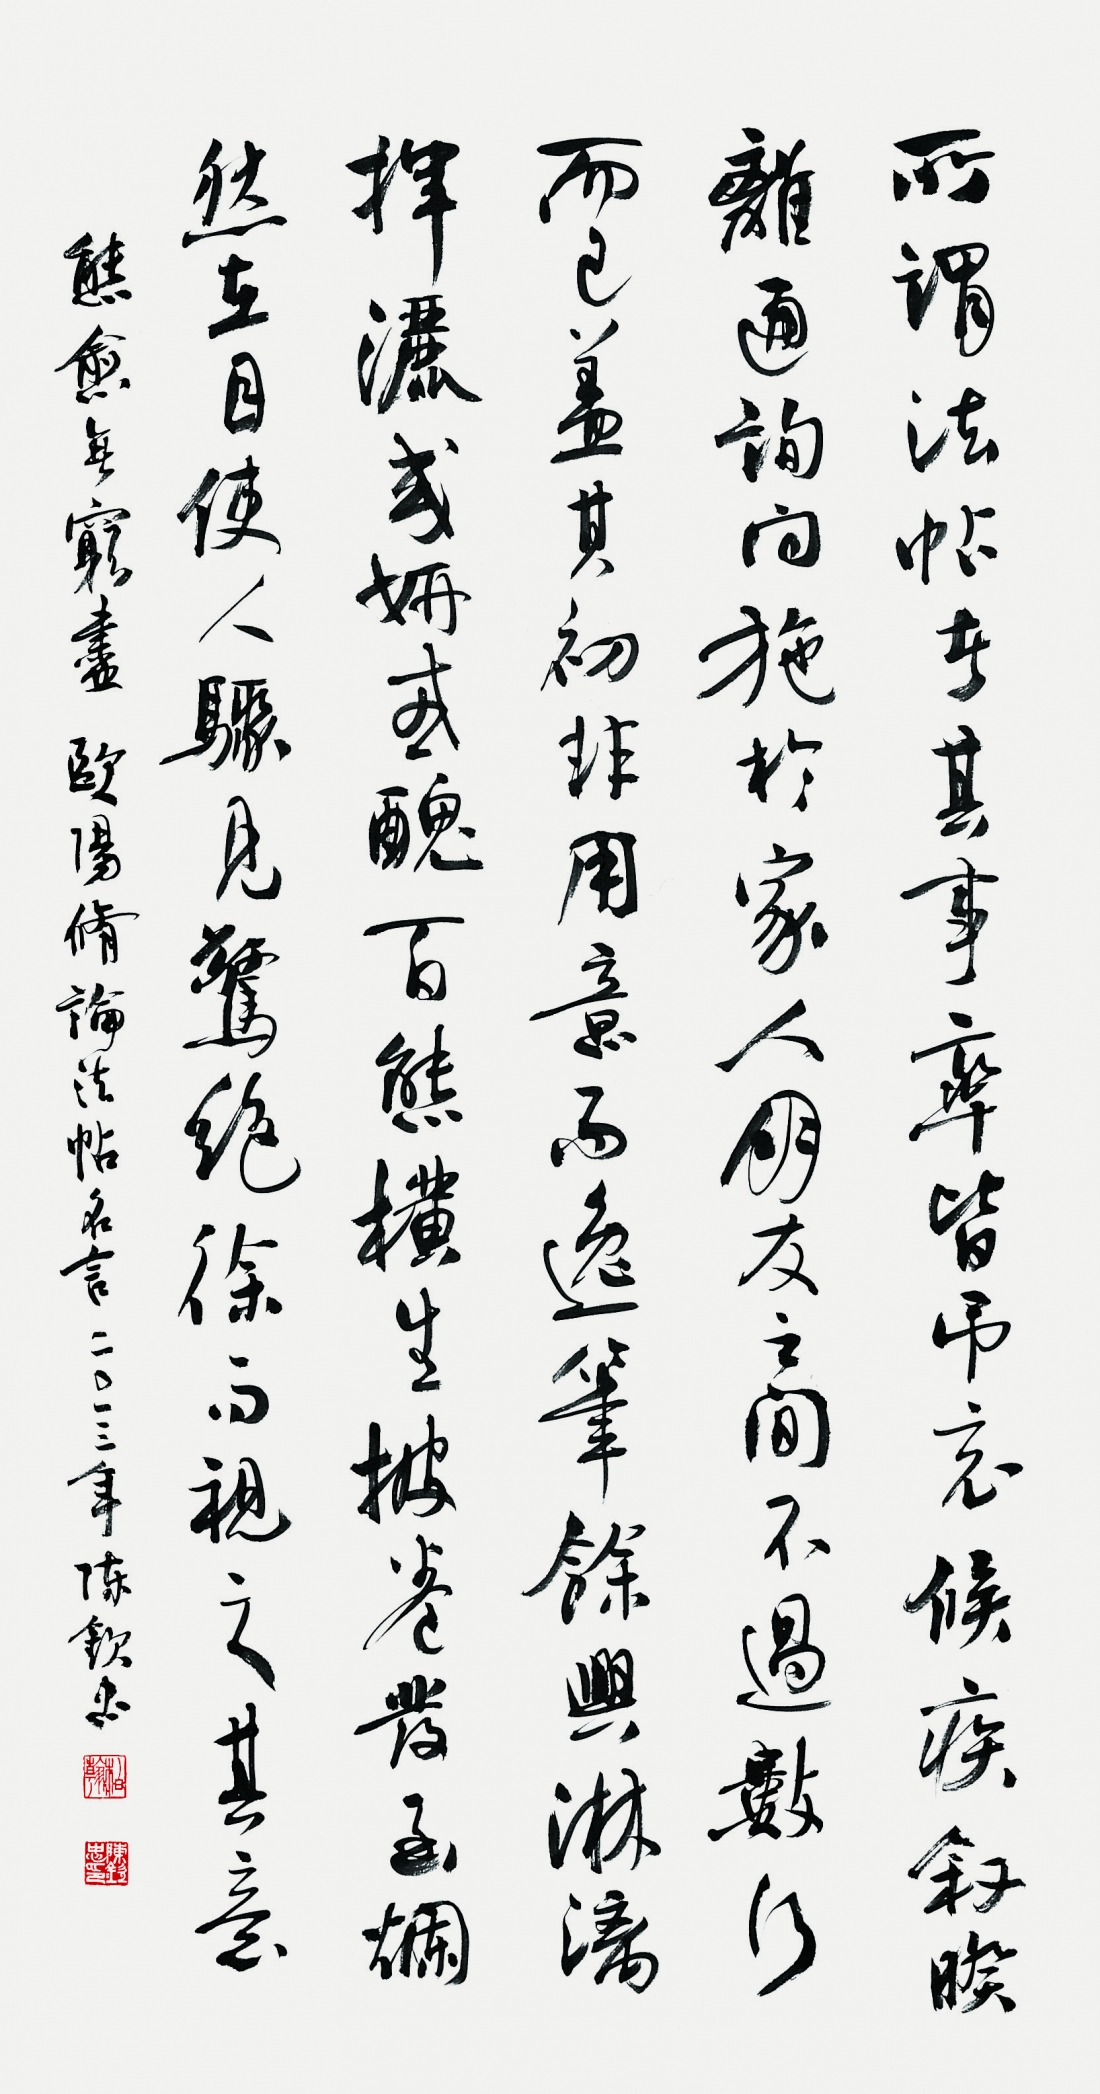 所謂法帖者其事率皆吊哀候疾叙睽
離通詢問施於家人朋友之間不過數行
而已蓋其初非用意而逸筆餘興淋漓
揮灑或妍或醜百態横生披卷發函爛
然在目使人驟見驚絶徐而視之其意
態愈無窮盡 歐陽脩論法帖名言二〇一三年陳欽忠
陳欽忠印